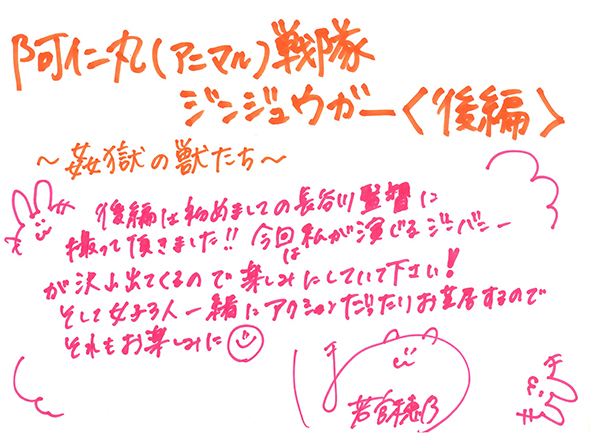 阿仁丸(アニマル)戦隊
ジンジュウガー〈後編〉
～姦獄の獣たち～
後編は初めましての長谷川監督に
撮って頂きました!!今回は私が演じるジーバニー
が沢山出てくるので楽しみにしていて下さい!
そして女子3人一緒にアクションだったりお芝居するので
それもお楽しみに
若宮穂乃